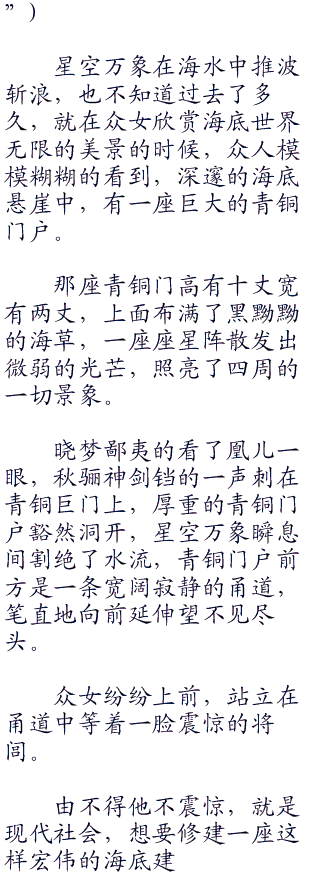 ”)
　　星空万象在海水中推波
斩浪，也不知道过去了多
久，就在众女欣赏海底世界
无限的美景的时候，众人模
模糊糊的看到，深邃的海底
悬崖中，有一座巨大的青铜
门户。
　　那座青铜门高有十丈宽
有两丈，上面布满了黑黝黝
的海草，一座座星阵散发出
微弱的光芒，照亮了四周的
一切景象。
　　晓梦鄙夷的看了凰儿一
眼，秋骊神剑铛的一声刺在
青铜巨门上，厚重的青铜门
户豁然洞开，星空万象瞬息
间割绝了水流，青铜门户前
方是一条宽阔寂静的甬道，
笔直地向前延伸望不见尽
头。
　　众女纷纷上前，站立在
甬道中等着一脸震惊的将
闾。
　　由不得他不震惊，就是
现代社会，想要修建一座这
样宏伟的海底建